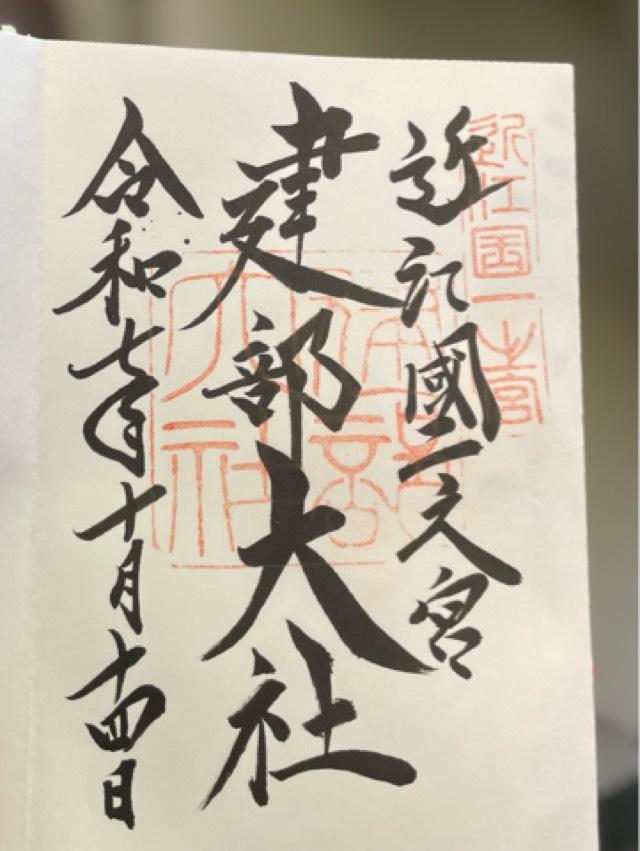 近江国一之宮
近江國一之宮
建部大社
建部
大社
令和七年十月十四日